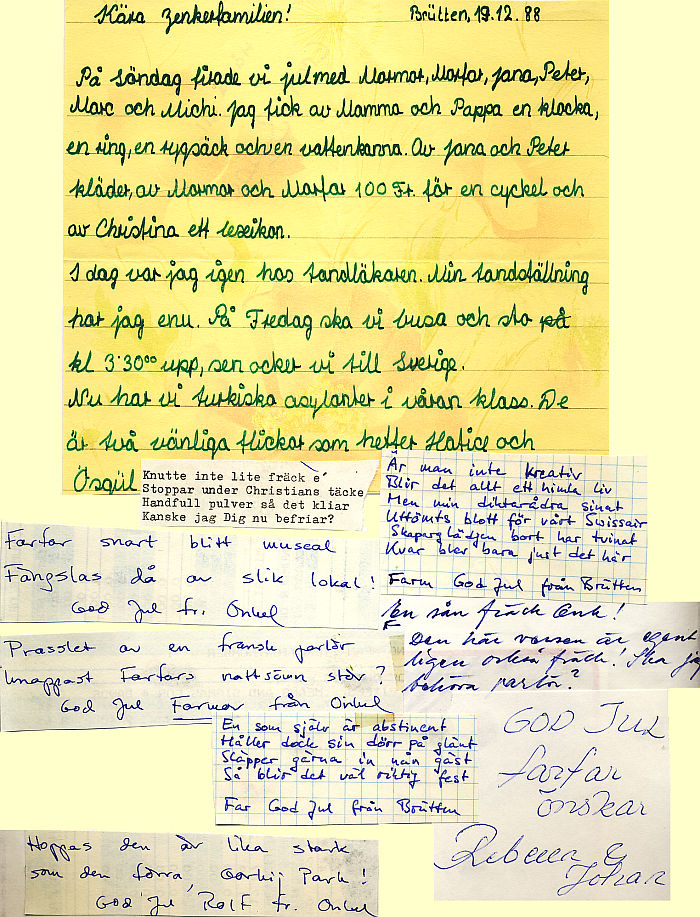 Kära Zenkerfamilien!
Brütten, 19.12.88
På Söndag firade vi jul med Mormor, Morfar, Jana, Peter,
Marc och Michi. Jag fick av Mamma och Pappa en klocka,
en ring, en rygsäck och en vattenkanna. Av Jana och Peter
kläder, av Mormor och Morfar 100 Fr. för en cyckel och
av Christina ett lexikon.
I dag var jag igen hos tandläkaren. Min tandställning
har jag enu. På Fredag ska vi busa och sto på
kl 3.30⁰⁰ upp, sen ocker vi till Sverige.
Nu har vi turkiska asylanter i våran klass. De
är två vänliga flickor som hetter Hatice och
Ösgül
Knutte inte lite fräck e´
Stoppar under Christians täcke
Handfull pulver så det kliar
Kanske jag Dig nu befriar?
Är man inte kreativ
Blir det allt ett himla liv
Men min diktarådra sinat
Uttömts blott för vårt Swissair
Skaparglädjen bort har tvinat
Kvar blev bara just det här
Farm God Jul från Brütten
Farfar snart blitt museal
Fängslas då av slik lokal!
God Jul fr. Onkel
En sån fräck Onk!
Den här versen är egent
ligen också fräck! Ska jag
behöva partör?
Prasslet av en fransk partör
knappast Farfars nattsömn stör?
God Jul Farmor från Onkel
En som själv är abstinent
Håller dock sin dörr på glänt
Släpper gärna in nån gäst
Så blir det väl riktig fest
Far God Jul från Brütten
GOD JUL
farfar
önskar
Rebecca &
Johan
Hoppas den är lika stark
som den förra, Gorkij Park!
God Jul Rolf fr. Onkel